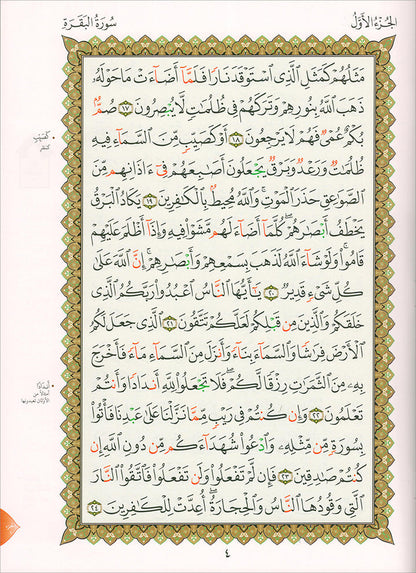 الجزء الأول
سورة البقرة
مَثَلُهُمْ كَمَثَلِ الَّذِي اسْتَوْقَدَ نَارًا فَلَمَّا أَضَاءَتْ مَا حَوْلَهُ
ذَهَبَ اللَّهُ بِنُورِهِمْ وَتَرَكَهُمْ فِي ظُلُمَاتٍ لَّا يُبْصِرُونَ ١٧ صُمٌّ
بُكْمٌ عُمْيٌ فَهُمْ لَا يَرْجِعُونَ ١٨ أَوْ كَصَيِّبٍ مِّنَ السَّمَاءِ فِيهِ
ظُلُمَاتٌ وَرَعْدٌ وَبَرْقٌ يَجْعَلُونَ أَصَابِعَهُمْ فِي آذَانِهِم مِّنَ
الصَّوَاعِقِ حَذَرَ الْمَوْتِ ۚ وَاللَّهُ مُحِيطٌ بِالْكَافِرِينَ ١٩ يَكَادُ الْبَرْقُ
يَخْطَفُ أَبْصَارَهُمْ ۖ كُلَّمَا أَضَاءَ لَهُم مَّشَوْا فِيهِ وَإِذَا أَظْلَمَ عَلَيْهِمْ
قَامُوا ۚ وَلَوْ شَاءَ اللَّهُ لَذَهَبَ بِسَمْعِهِمْ وَأَبْصَارِهِمْ ۚ إِنَّ اللَّهَ عَلَىٰ
كُلِّ شَيْءٍ قَدِيرٌ ٢٠ يَا أَيُّهَا النَّاسُ اعْبُدُوا رَبَّكُمُ الَّذِي
خَلَقَكُمْ وَالَّذِينَ مِن قَبْلِكُمْ لَعَلَّكُمْ تَتَّقُونَ ٢١ الَّذِي جَعَلَ لَكُمُ
الْأَرْضَ فِرَاشًا وَالسَّمَاءَ بِنَاءً وَأَنزَلَ مِنَ السَّمَاءِ مَاءً فَأَخْرَجَ
بِهِ مِنَ الثَّمَرَاتِ رِزْقًا لَّكُمْ ۖ فَلَا تَجْعَلُوا لِلَّهِ أَندَادًا وَأَنتُمْ
تَعْلَمُونَ ٢٢ وَإِن كُنتُمْ فِي رَيْبٍ مِّمَّا نَزَّلْنَا عَلَىٰ عَبْدِنَا فَأْتُوا
بِسُورَةٍ مِّن مِّثْلِهِ وَادْعُوا شُهَدَاءَكُم مِّن دُونِ اللَّهِ إِن
كُنتُمْ صَادِقِينَ ٢٣ فَإِن لَّمْ تَفْعَلُوا وَلَن تَفْعَلُوا فَاتَّقُوا النَّارَ
الَّتِي وَقُودُهَا النَّاسُ وَالْحِجَارَةُ ۖ أُعِدَّتْ لِلْكَافِرِينَ ٢٤
كَصَيِّبٍ
كمطر
أندادًا
أمثالاً من
الأوثان تعبدونها
٤